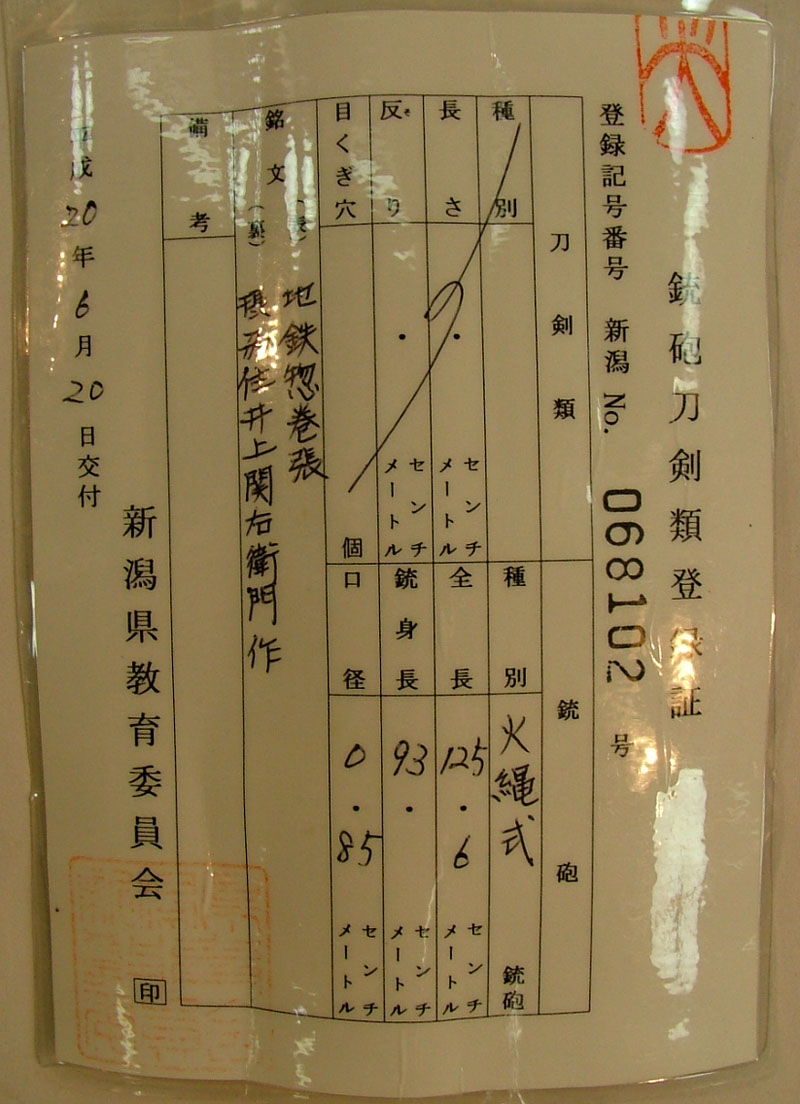 銃砲刀剣類登録証
登録記号番号 新潟 No. 068102 号
刀剣類
種別
長さ ・ センチメートル
反り ・ センチメートル
目くぎ穴 個
銃砲
種別 火縄式 銃砲
全長 125・6 センチメートル
銃身長 93・ センチメートル
口径 0・85 センチメートル
銘文
(表) 地鉄惣巻張
(裏) 住井上関右衛門作
備考
平成20年6月20日交付
新潟県教育委員会 印